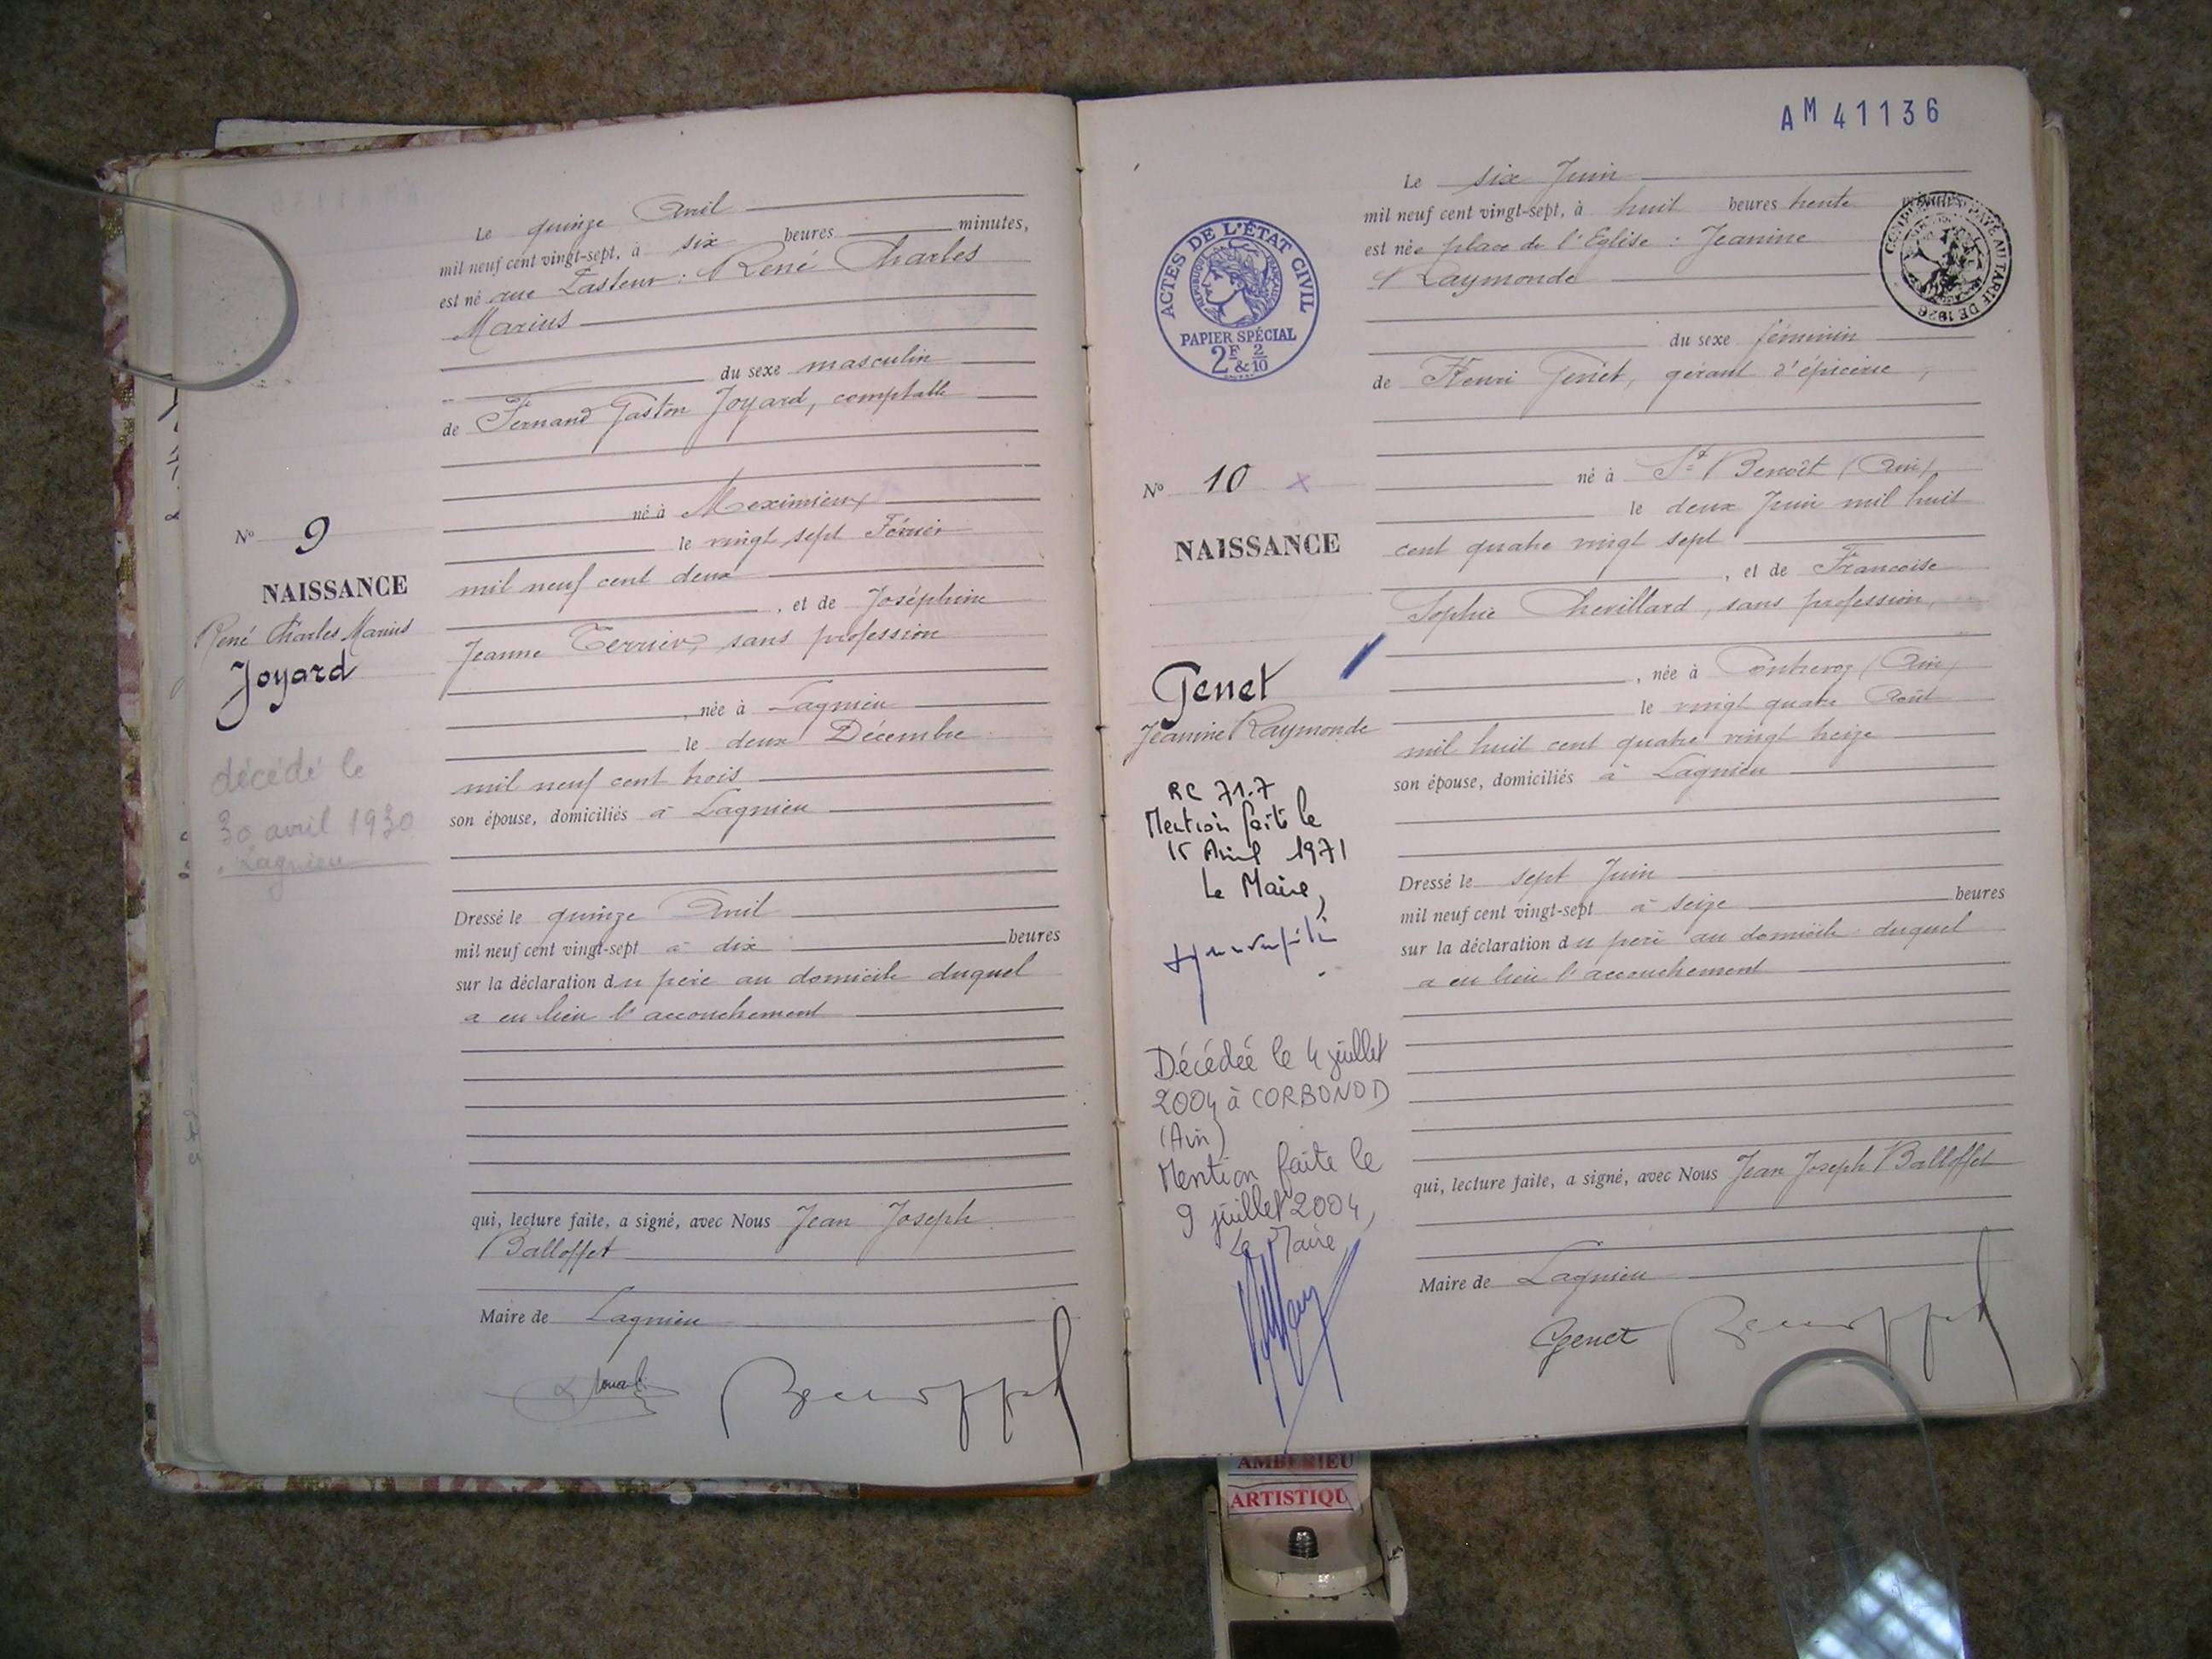 Le quinze Avril
mil neuf cent vingt-sept, à six heures minutes,
est né rue Pasteur : René Charles
Marius
du sexe masculin
de Fernand Gaston Joyard, comptable
né à Meximieux
le vingt sept Février
mil neuf cent deux
, et de Joséphine
Jeanne Terrier, sans profession
, née à Lagnieu
le deux Décembre
mil neuf cent trois
son épouse, domiciliés à Lagnieu
Dressé le quinze Avril
mil neuf cent vingt-sept à dix heures
sur la déclaration du père au domicile duquel
a eu lieu l'accouchement
qui, lecture faite, a signé, avec Nous Jean Joseph
Balloffet
Maire de Lagnieu
No 9
NAISSANCE
René Charles Marius
Joyard
décédé le
30 avril 1930
Lagnieu
AM 41136
Le six Juin
mil neuf cent vingt-sept, à huit heures trente
est née place de l'Eglise : Jeanine
Raymonde
du sexe féminin
de Henri Genet, gérant d'épicerie,
né à St Benoît (Ain)
le deux Juin mil huit
cent quatre vingt sept
, et de Francoise
Sophie Chevillard, sans profession,
, née à (Ain)
le vingt quatre Août
mil huit cent quatre vingt treize
son épouse, domiciliés à Lagnieu
Dressé le sept Juin
mil neuf cent vingt-sept à seize heures
sur la déclaration du père au domicile duquel
a eu lieu l'accouchement
qui, lecture faite, a signé, avec Nous Jean Joseph Balloffet
Maire de Lagnieu
Genet
ACTES DE L'ÉTAT CIVIL
RÉPUBLIQUE FRANÇAISE
PAPIER SPÉCIAL
2F & 2/10
PAYÉ AU TARIF DE 1926
No 10 x
NAISSANCE
Genet
Jeanine Raymonde
RC 71.7
Mention faite le
15 Avril 1971
Le Maire,
Décédée le 4 juillet
2004 à CORBONOD
(Ain)
Mention faite le
9 juillet 2004,
Le Maire,
AMBERIEU
ARTISTIQU